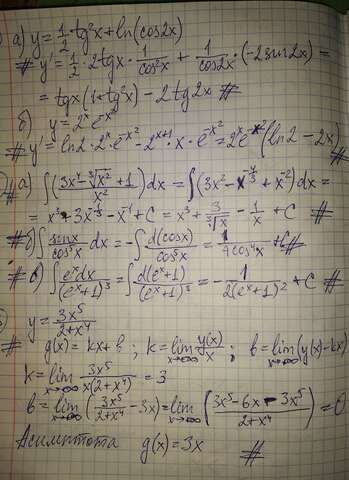 а) y = 1/2 · tg²x + ln(cos2x)
# y' = 1/2 · 2tgx · 1/cos²x + 1/cos2x · (-2sin2x) =
= tgx(1+tg²x) - 2tg2x #
б) y = 2ˣe^(-x²)
# y' = ln2 · 2ˣ · e^(-x²) - 2^(x+1) · x · e^(-x²) = 2ˣe^(-x²)(ln2 - 2x) #
а) ∫((3x⁴ - ∛(x²) + 1)/x²)dx = ∫(3x² - x^(-4/3) + x^(-2))dx =
= x³ + 3x^(-1/3) - x^(-1) + C = x³ + 3/∛x - 1/x + C #
# б) ∫ sinx/cos⁵x dx = -∫ d(cosx)/cos⁵x = 1/(4cos⁴x) + C #
# в) ∫ eˣdx/(eˣ+1)³ = ∫ d(eˣ+1)/(eˣ+1)³ = - 1/(2(eˣ+1)²) + C #
y = 3x⁵/(2+x⁴)
# g(x) = kx + b ; k = lim x→∞ y(x)/x ; b = lim x→∞ (y(x) - kx)
k = lim x→∞ 3x⁵/(x(2+x⁴)) = 3
b = lim x→∞ (3x⁵/(2+x⁴) - 3x) = lim x→∞ ((3x⁵ - 6x - 3x⁵)/(2+x⁴)) = 0
Асимптота g(x) = 3x #